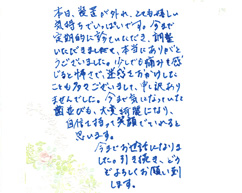 本日、装置が外れ、とても嬉しい
気持ちでいっぱいです。今まで
定期的に診ていただき、調整
いただきまして、本当にありがと
うございました。少しでも痛みを感
じると怖さで、迷惑をおかけした
ことも多々ございまして、申し訳あり
ませんでした。今まで気になっていた
歯並びも、大変綺麗になり、
自信を持って笑顔でいれると
思います。
今までお世話になりま
した。引き続き、どう
ぞよろしくお願い致
します。